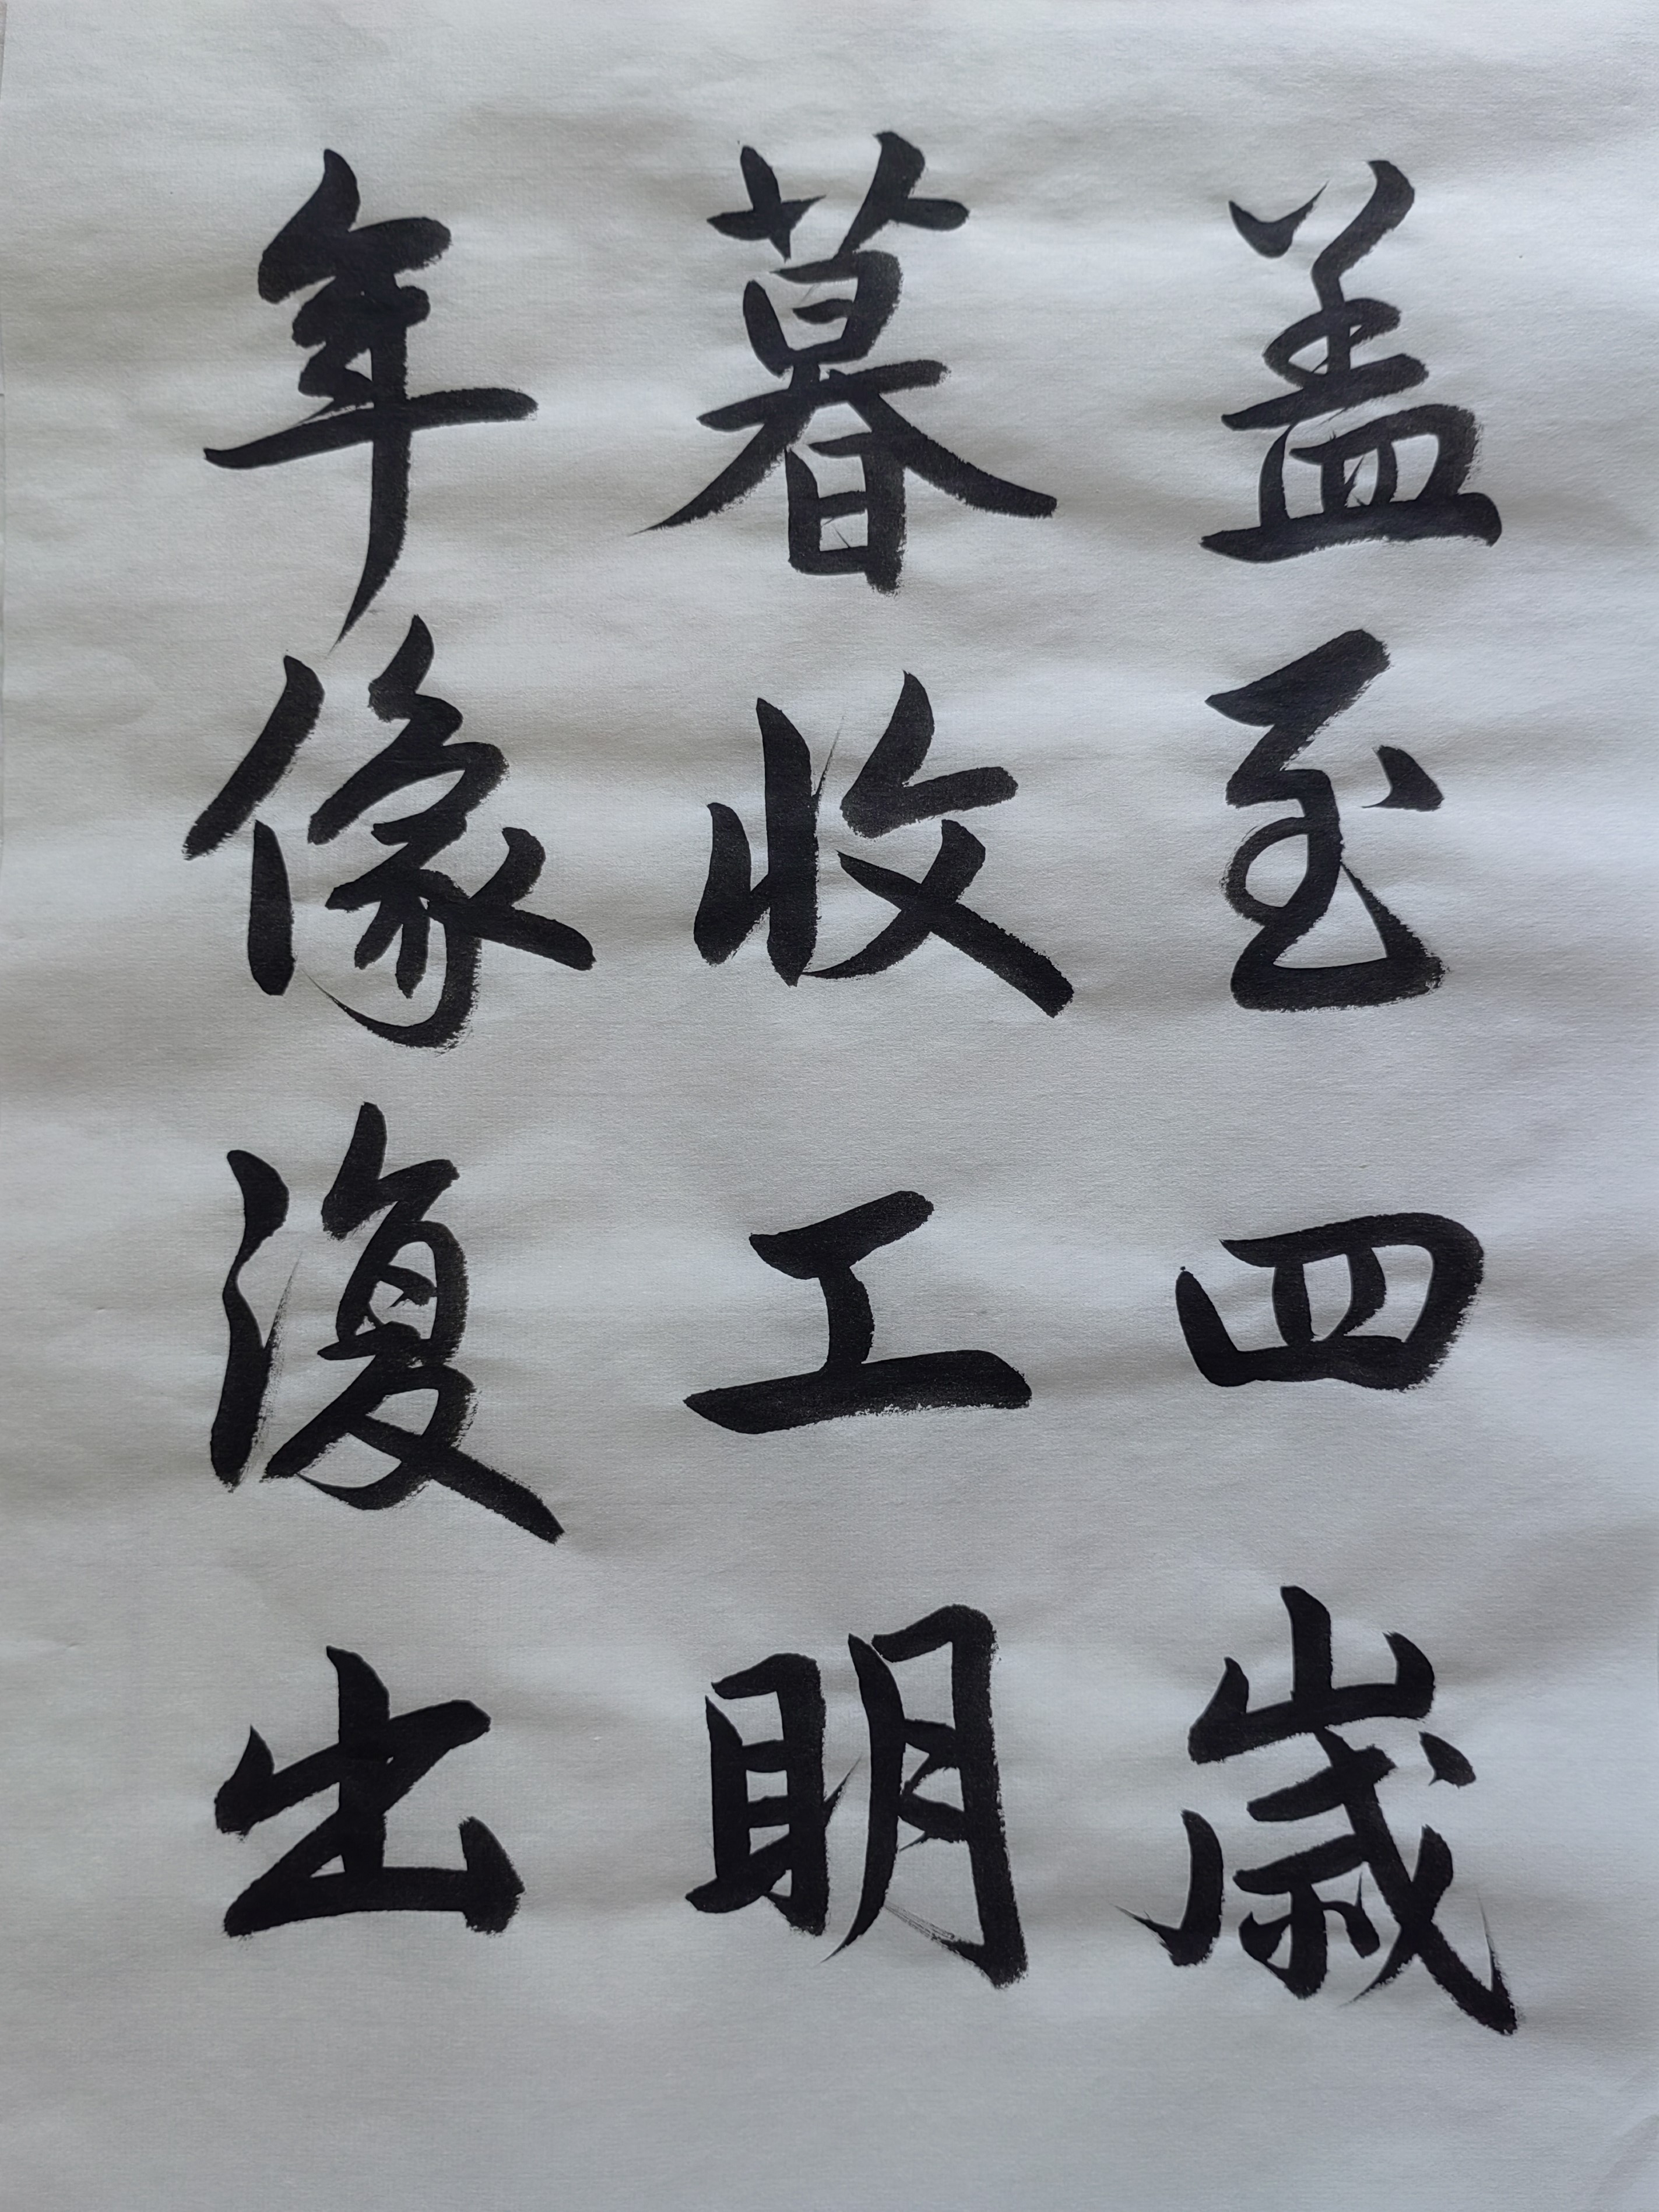 盖至四歲
暮收工明
年像復出